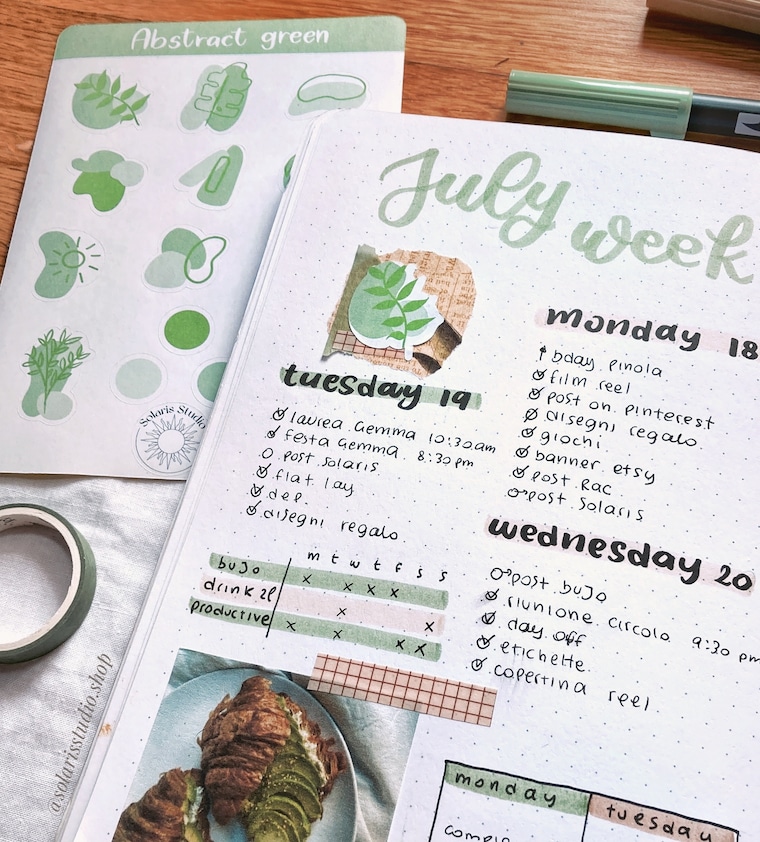 Abstract green
Solaris Studio
July week
monday 18
bday pinola
film reel
post on pinterest
disegni regalo
giochi
banner etsy
post RAC
post solaris
tuesday 19
laurea Gemma 10:30am
festa Gemma 8:30pm
post solaris
flat lay
dep
disegni regalo
wednesday 20
post bujo
riunione circolo 9:30 pm
day off
etichette
copertina reel
m t w t f s s
bujo x x x x
drink 2l x x
productive x x x x
monday
tuesday
@solarisstudio.shop